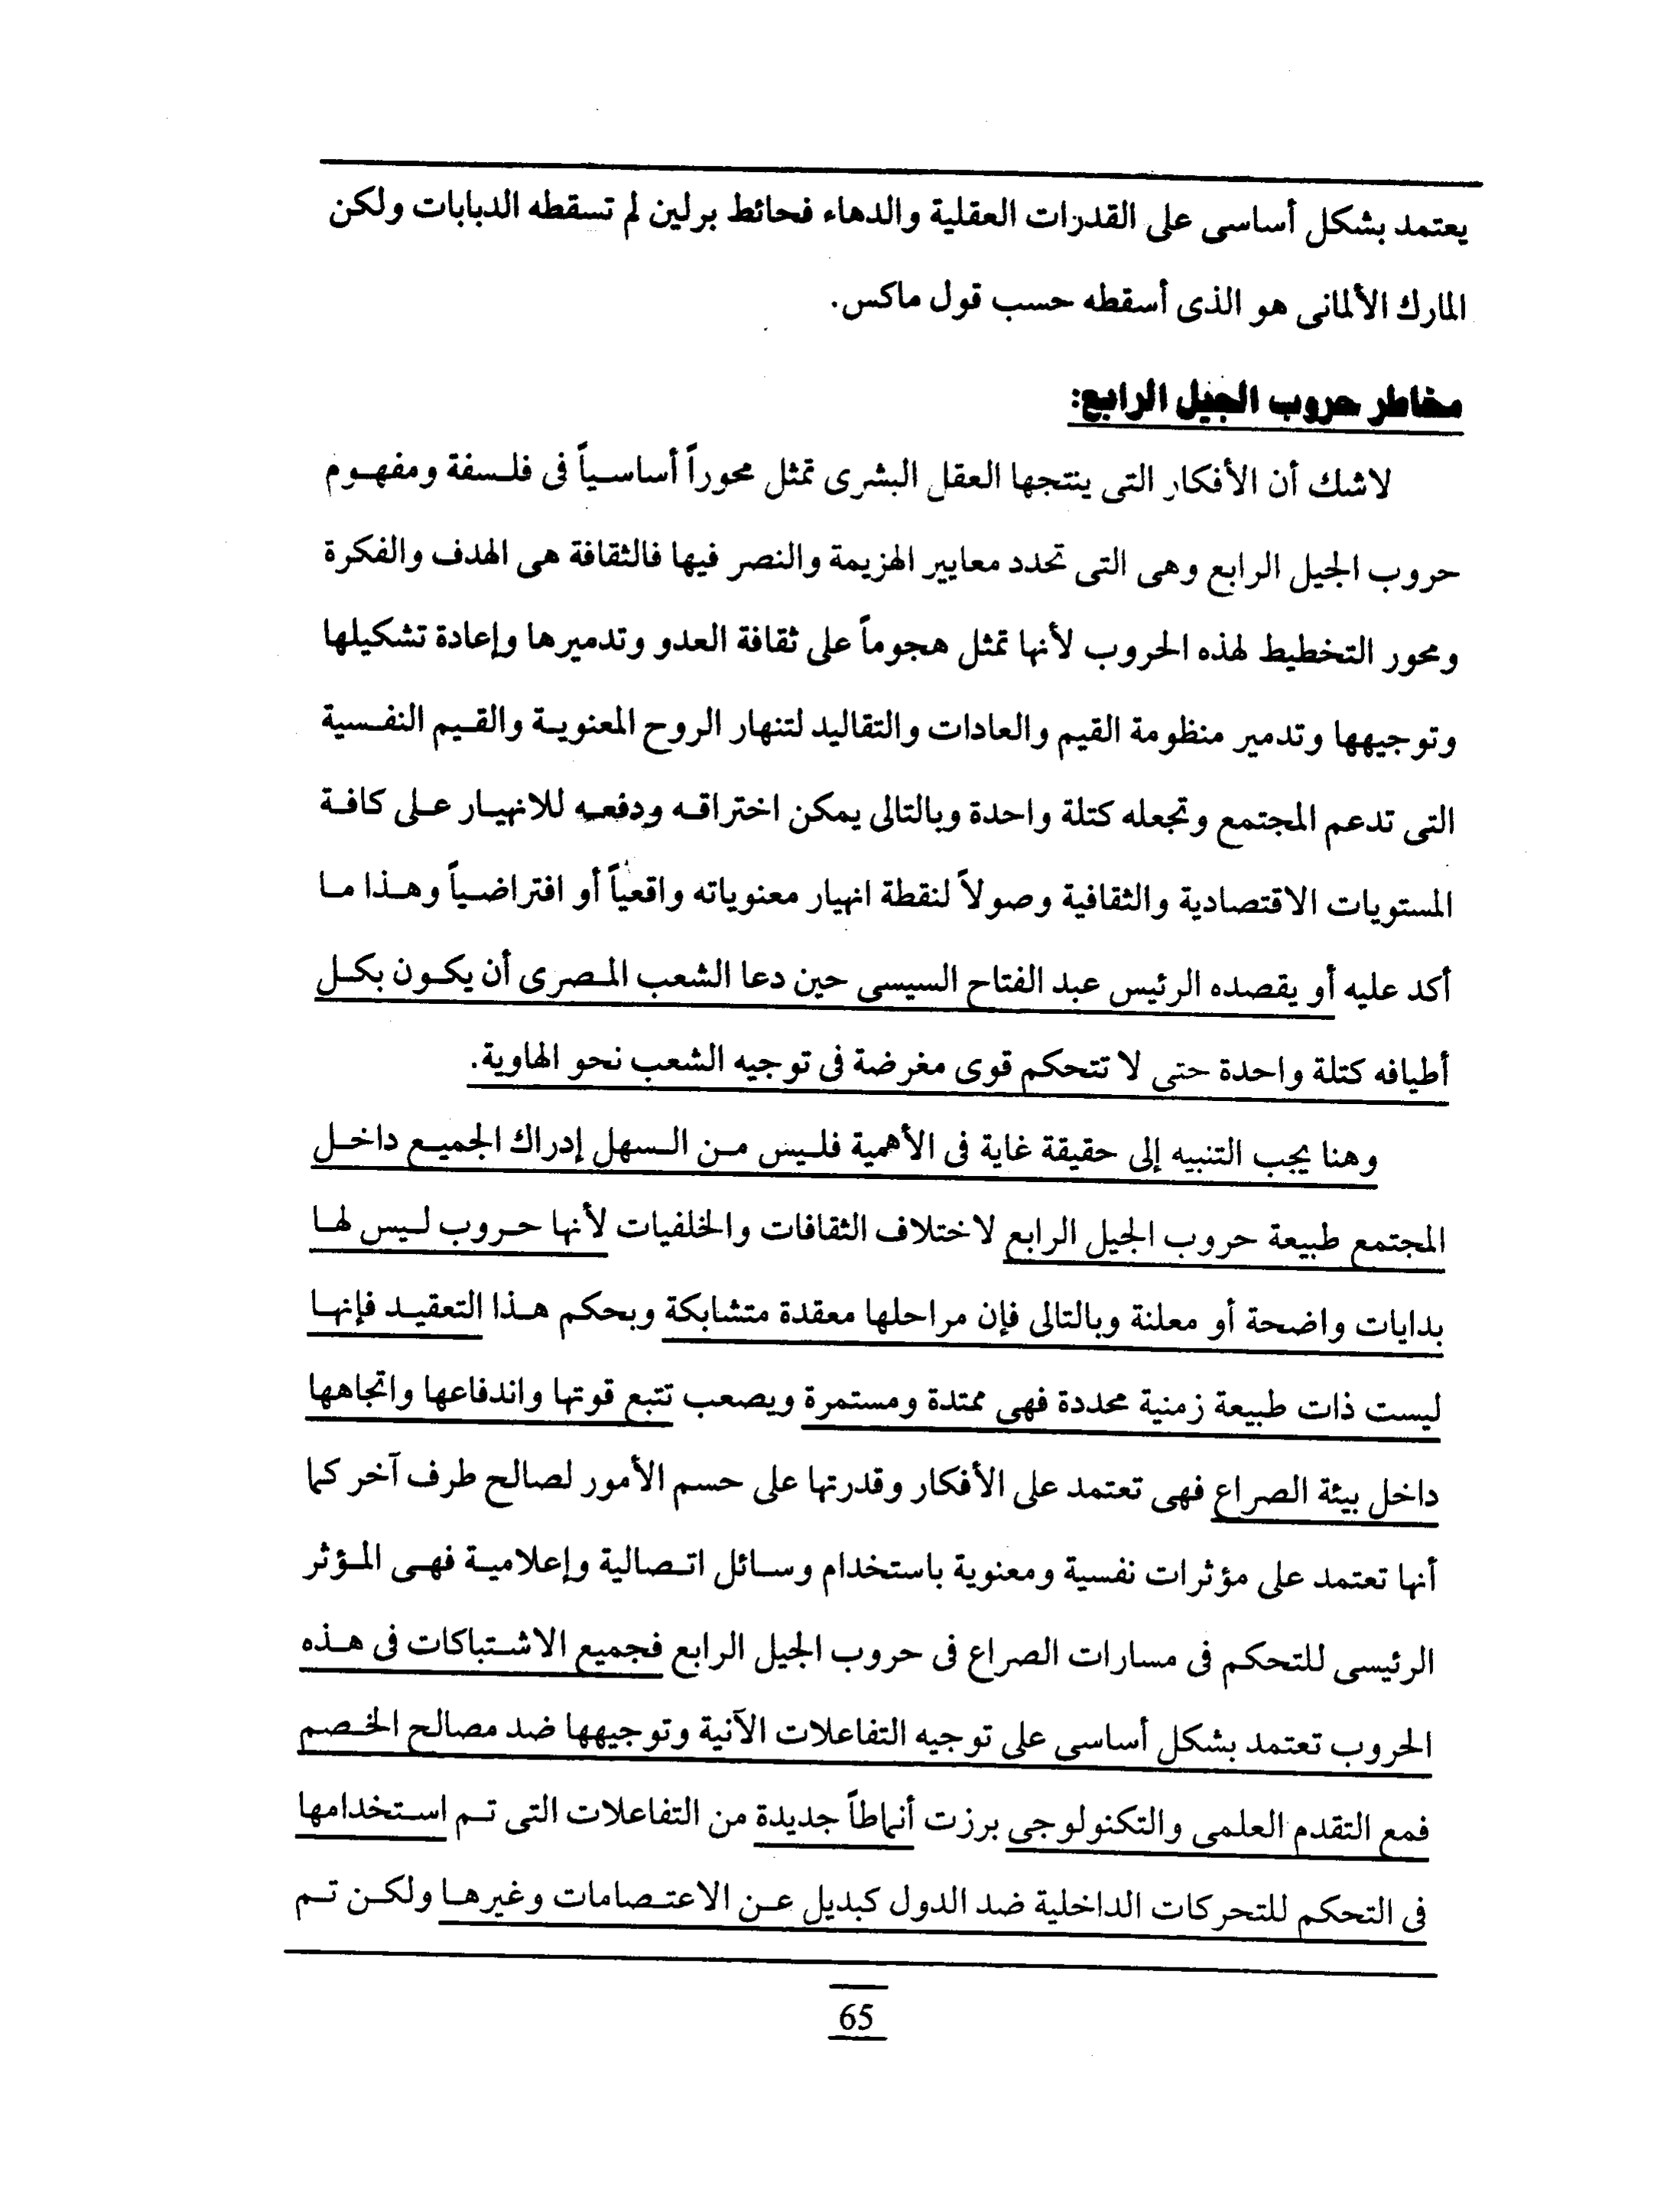 يعتمد بشكل أساسى على القدرات العقلية والدهاء فحائط برلين لم تسقطه الدبابات ولكن
المارك الألمانى هو الذى أسقطه حسب قول ماكس.
مخاطر حروب الجيل الرابع:
لاشك أن الأفكار التى ينتجها العقل البشرى تمثل محوراً أساسياً فى فلسفة ومفهوم
حروب الجيل الرابع وهى التى تحدد معايير الهزيمة والنصر فيها فالثقافة هى الهدف والفكرة
ومحور التخطيط لهذه الحروب لأنها تمثل هجوماً على ثقافة العدو وتدميرها وإعادة تشكيلها
وتوجيهها وتدمير منظومة القيم والعادات والتقاليد لتنهار الروح المعنوية والقيم النفسية
التى تدعم المجتمع وتجعله كتلة واحدة وبالتالى يمكن اختراقه ودفعه للانهيار على كافة
المستويات الاقتصادية والثقافية وصولاً لنقطة انهيار معنوياته واقعياً أو افتراضياً وهذا ما
أكد عليه أو يقصده الرئيس عبد الفتاح السيسى حين دعا الشعب المصرى أن يكون بكل
أطيافه كتلة واحدة حتى لا تتحكم قوى مغرضة فى توجيه الشعب نحو الهاوية.
وهنا يجب التنبيه إلى حقيقة غاية فى الأهمية فليس من السهل إدراك الجميع داخل
المجتمع طبيعة حروب الجيل الرابع لاختلاف الثقافات والخلفيات لأنها حروب ليس لها
بدايات واضحة أو معلنة وبالتالى فإن مراحلها معقدة متشابكة وبحكم هذا التعقيد فإنها
ليست ذات طبيعة زمنية محددة فهى ممتدة ومستمرة ويصعب تتبع قوتها واندفاعها واتجاهها
داخل بيئة الصراع فهى تعتمد على الأفكار وقدرتها على حسم الأمور لصالح طرف آخر كما
أنها تعتمد على مؤثرات نفسية ومعنوية باستخدام وسائل اتصالية وإعلامية فهى المؤثر
الرئيسى للتحكم فى مسارات الصراع فى حروب الجيل الرابع فجميع الاشتباكات فى هذه
الحروب تعتمد بشكل أساسى على توجيه التفاعلات الآنية وتوجيهها ضد مصالح الخصم
فمع التقدم العلمى والتكنولوجى برزت أنماطاً جديدة من التفاعلات التى تم استخدامها
فى التحكم للتحركات الداخلية ضد الدول كبديل عن الاعتصامات وغيرها ولكن تم
65